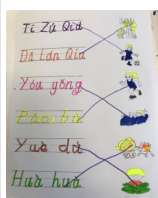 Tī Zú Qiú
Dǎ Lán Qiú
Yóu yǒng
Pǎo bù
Yuè dú
Huà huà